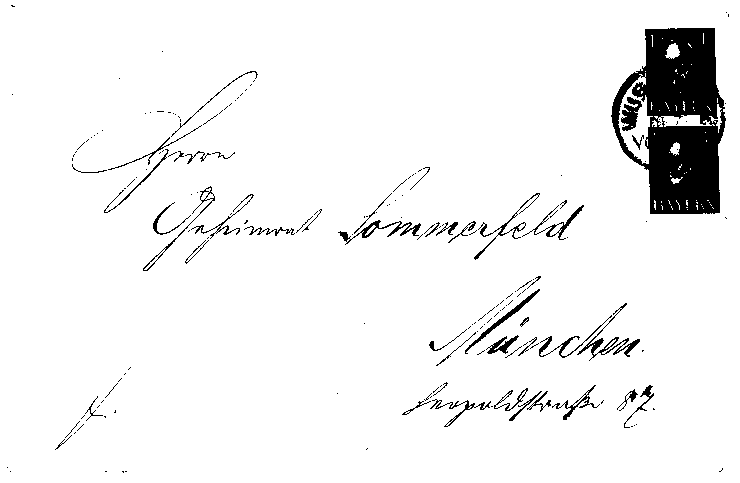 BAYERN
BAYERN
Herrn
Geheimrat Sommerfeld
München.
Leopoldstraße 87.